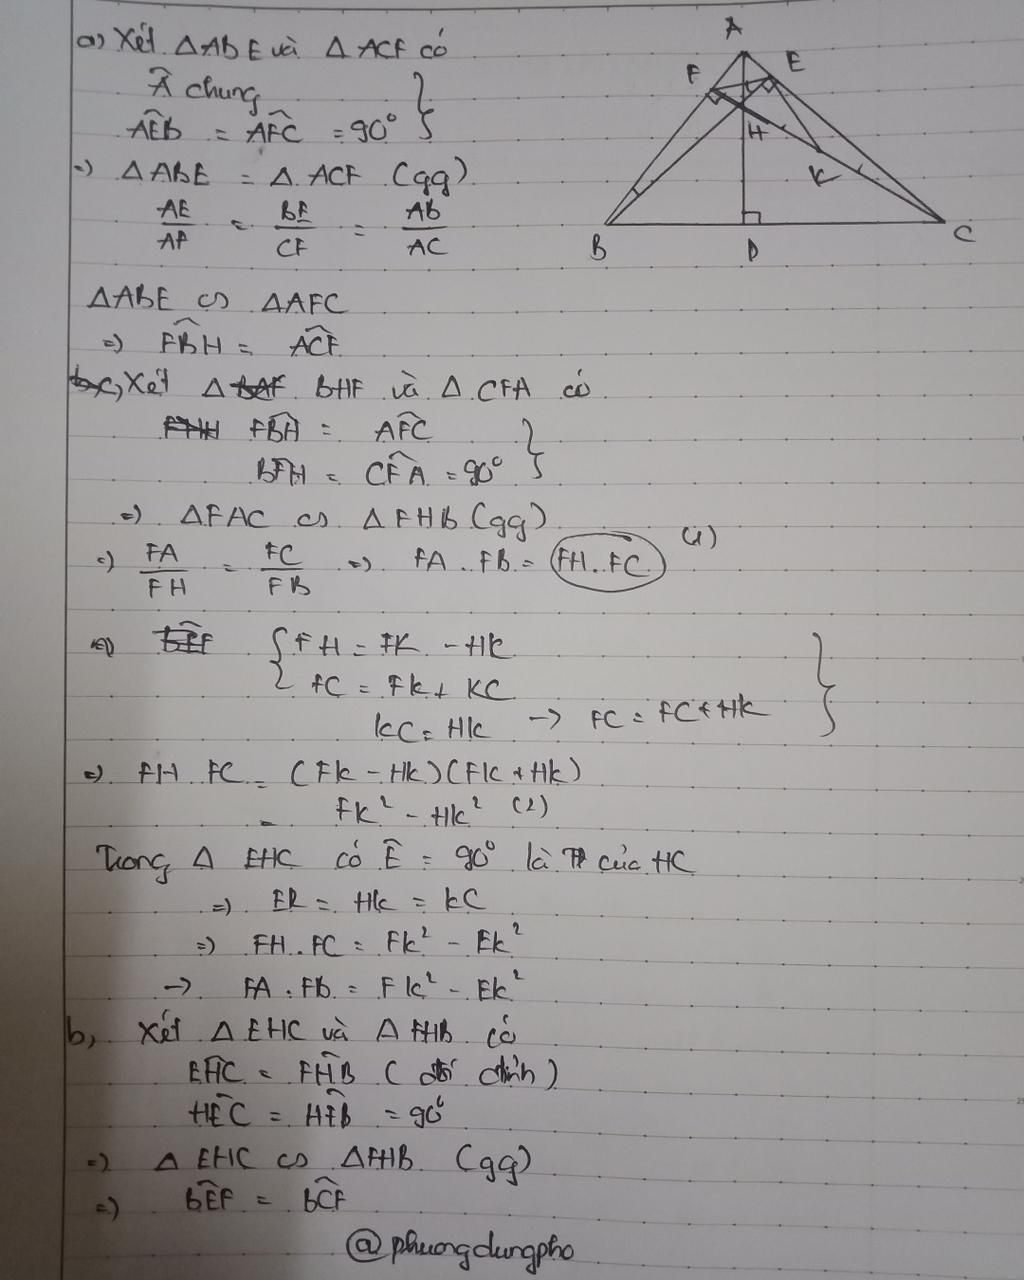 a) Xét ΔABE và ΔACF có
Â chung
AÊB = AF̂C = 90°
=> ΔABE = Δ ACF (gg)
AE/AF = BE/CF = AB/AC
ΔABE ∽ ΔAFC
=> FB̂H = AĈF
c, Xét Δ BHF và Δ CFA có
FB̂H = AF̂C
BFH = CF̂A = 90°
=> ΔFAC ∽ ΔFHB (gg)
=> FA/FH = FC/FB => FA . FB = FH . FC (1)
=> { FH = FK - HK
FC = FK + KC
KC = HK -> FC = FC + HK }
=> FH . FC = (FK - HK)(FK + HK)
= FK² - HK² (2)
Trong Δ EHC có Ê = 90° là của HC
=> EK = HK = KC
=> FH . FC = FK² - EK²
-> FA . FB = FK² - EK²
b, Xét Δ EHC và Δ FHB có
EĤC = FĤB (đối đỉnh)
HÊC = HF̂B = 90°
=> Δ EHC ∽ ΔFHB (gg)
=> BÊF = BĈF
@phuongdungpho
A
F
E
H
K
B
D
C